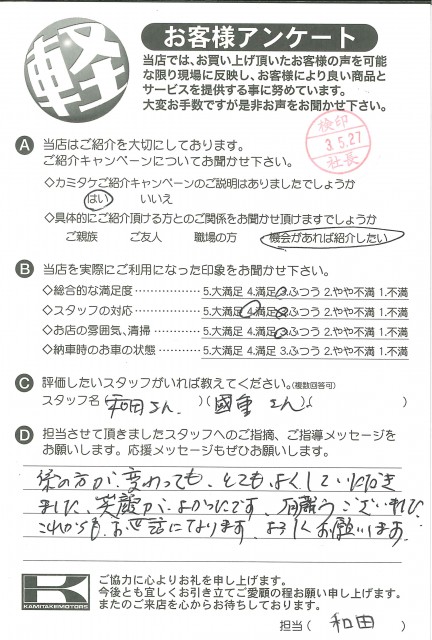 軽
お客様アンケート
当店では、お買い上げ頂いたお客様の声を可能
な限り現場に反映し、お客様により良い商品と
サービスを提供する事に努めています。
大変お手数ですが是非お声をお聞かせ下さい。
検印
3.5.27
社長
A 当店はご紹介を大切にしております。
ご紹介キャンペーンについてお聞かせ下さい。
◇カミタケご紹介キャンペーンのご説明はありましたでしょうか
はい いいえ
◇具体的にご紹介頂ける方とのご関係をお聞かせ頂けますでしょうか
ご親族 ご友人 職場の方 機会があれば紹介したい
B 当店を実際にご利用になった印象をお聞かせ下さい。
◇総合的な満足度 ⋯⋯⋯⋯⋯ 5.大満足 4.満足 3.ふつう 2.やや不満 1.不満
◇スタッフの対応 ⋯⋯⋯⋯⋯ 5.大満足 4.満足 3.ふつう 2.やや不満 1.不満
◇お店の雰囲気、清掃 ⋯⋯⋯ 5.大満足 4.満足 3.ふつう 2.やや不満 1.不満
◇納車時のお車の状態 ⋯⋯⋯ 5.大満足 4.満足 3.ふつう 2.やや不満 1.不満
C 評価したいスタッフがいれば教えてください。(複数回答可)
スタッフ名(和田さん )(國重さん )( )
D 担当させて頂きましたスタッフへのご指摘、ご指導メッセージを
お願いします。応援メッセージもぜひお願いします。
係の方が、変わっても、とてもよくしていただき
ました、笑顔が、よかったです、有難うございました
これからもお世話になります、よろしくお願いします
K
KAMITAKEMOTORS
ご協力に心よりお礼を申し上げます。
今後とも宜しくお引き立てご愛顧の程お願い申し上げます。
またのご来店を心からお待ちしております。
担当( 和田 )